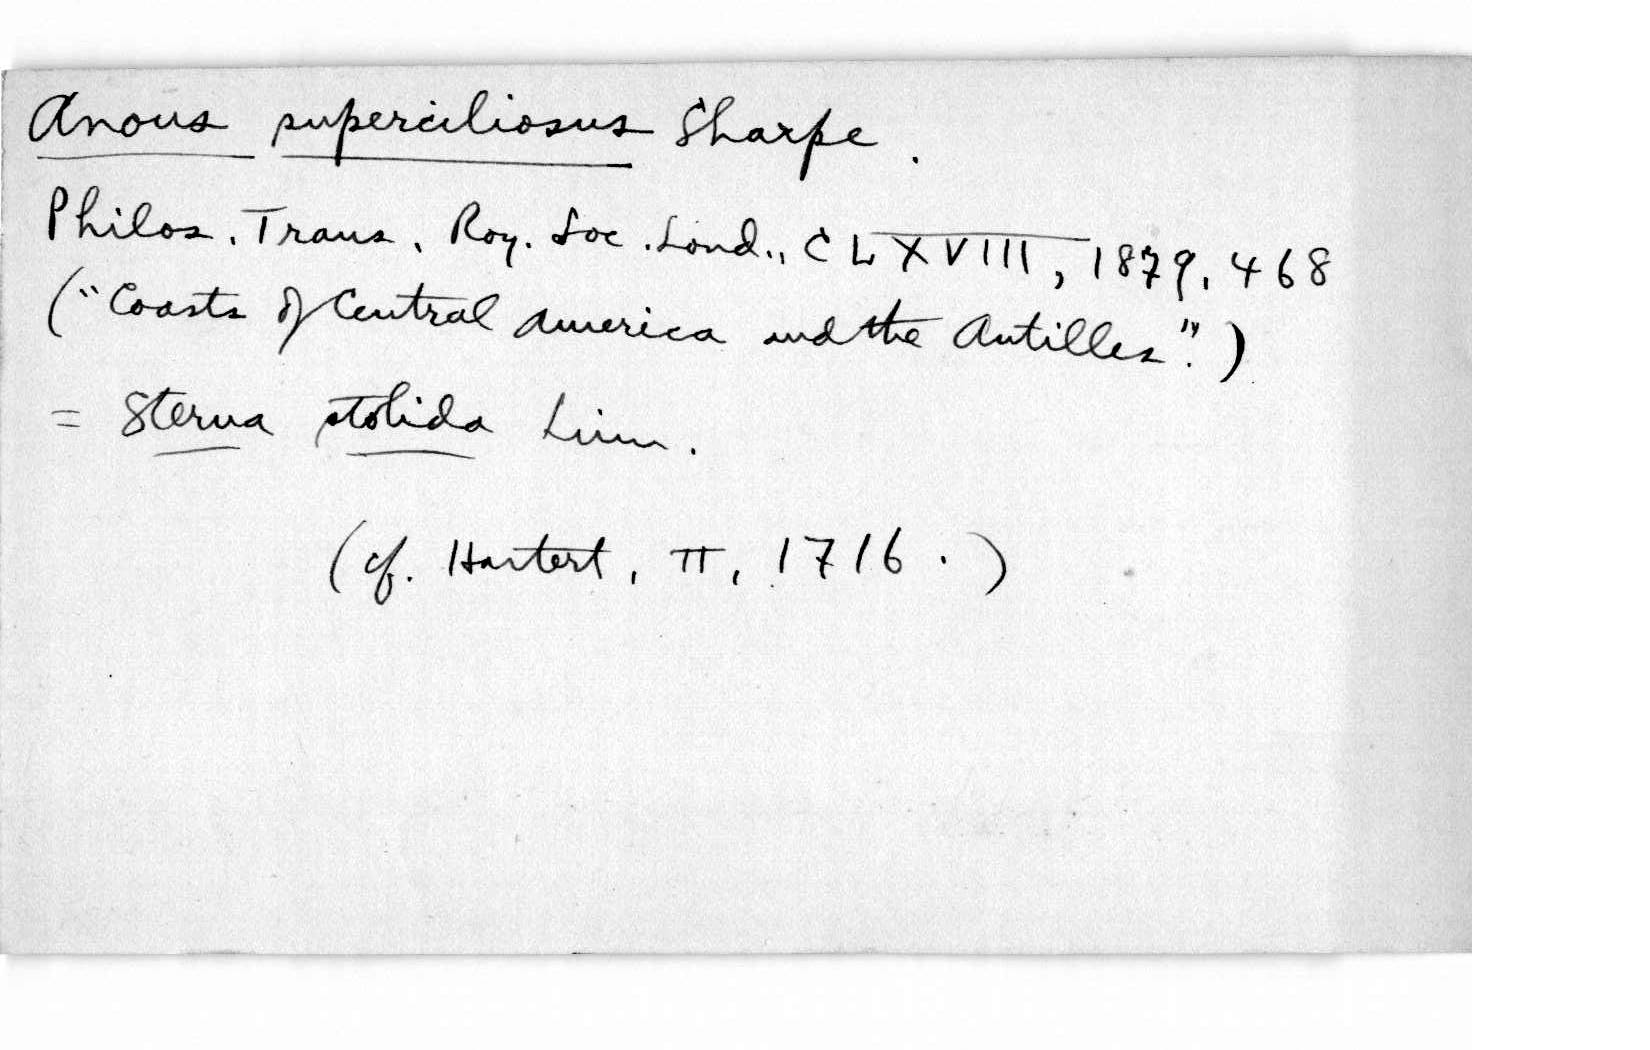 Anous superciliosus Sharpe.
Philos. Trans. Roy. Soc. Lond., CLXVIII, 1879, 468
("Coasts of Central America and the Antilles".)
= Sterna stolida Linn.
(cf. Hartert, II, 1716.)